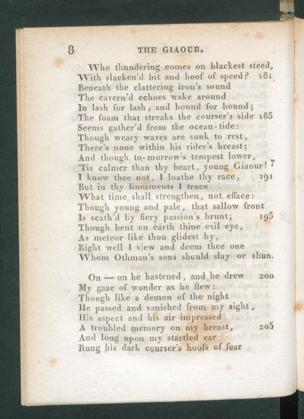 8 THE GIAOUR.
Who thundering comes on blackest steed,
With slacken'd bit and hoof of speed? 181
Beneath the clattering iron's sound
The cavern'd echoes wake around
In lash for lash, and bound for bound;
The foam that streaks the courser's side 185
Seems gather'd from the ocean-tide:
Though weary waves are sunk to rest,
There's none within his rider's breast;
And though to-morrow's tempest lower,
'Tis calmer than thy heart, young Giaour! 7
I know thee not, I loathe thy race, 191
But in thy lineaments I trace
What time shall strengthen, not efface:
Though young and pale, that sallow front
Is scath'd by fiery passion's brunt; 195
Though bent on earth thine evil eye,
As meteor like thou glidest by,
Right well I view and deem thee one
Whom Othman's sons should slay or shun.
On — on he hastened, and he drew 200
My gaze of wonder as he flew:
Though like a demon of the night
He passed and vanished from my sight,
His aspect and his air impressed
A troubled memory on my breast, 205
And long upon my startled ear
Rung his dark courser's hoofs of fear